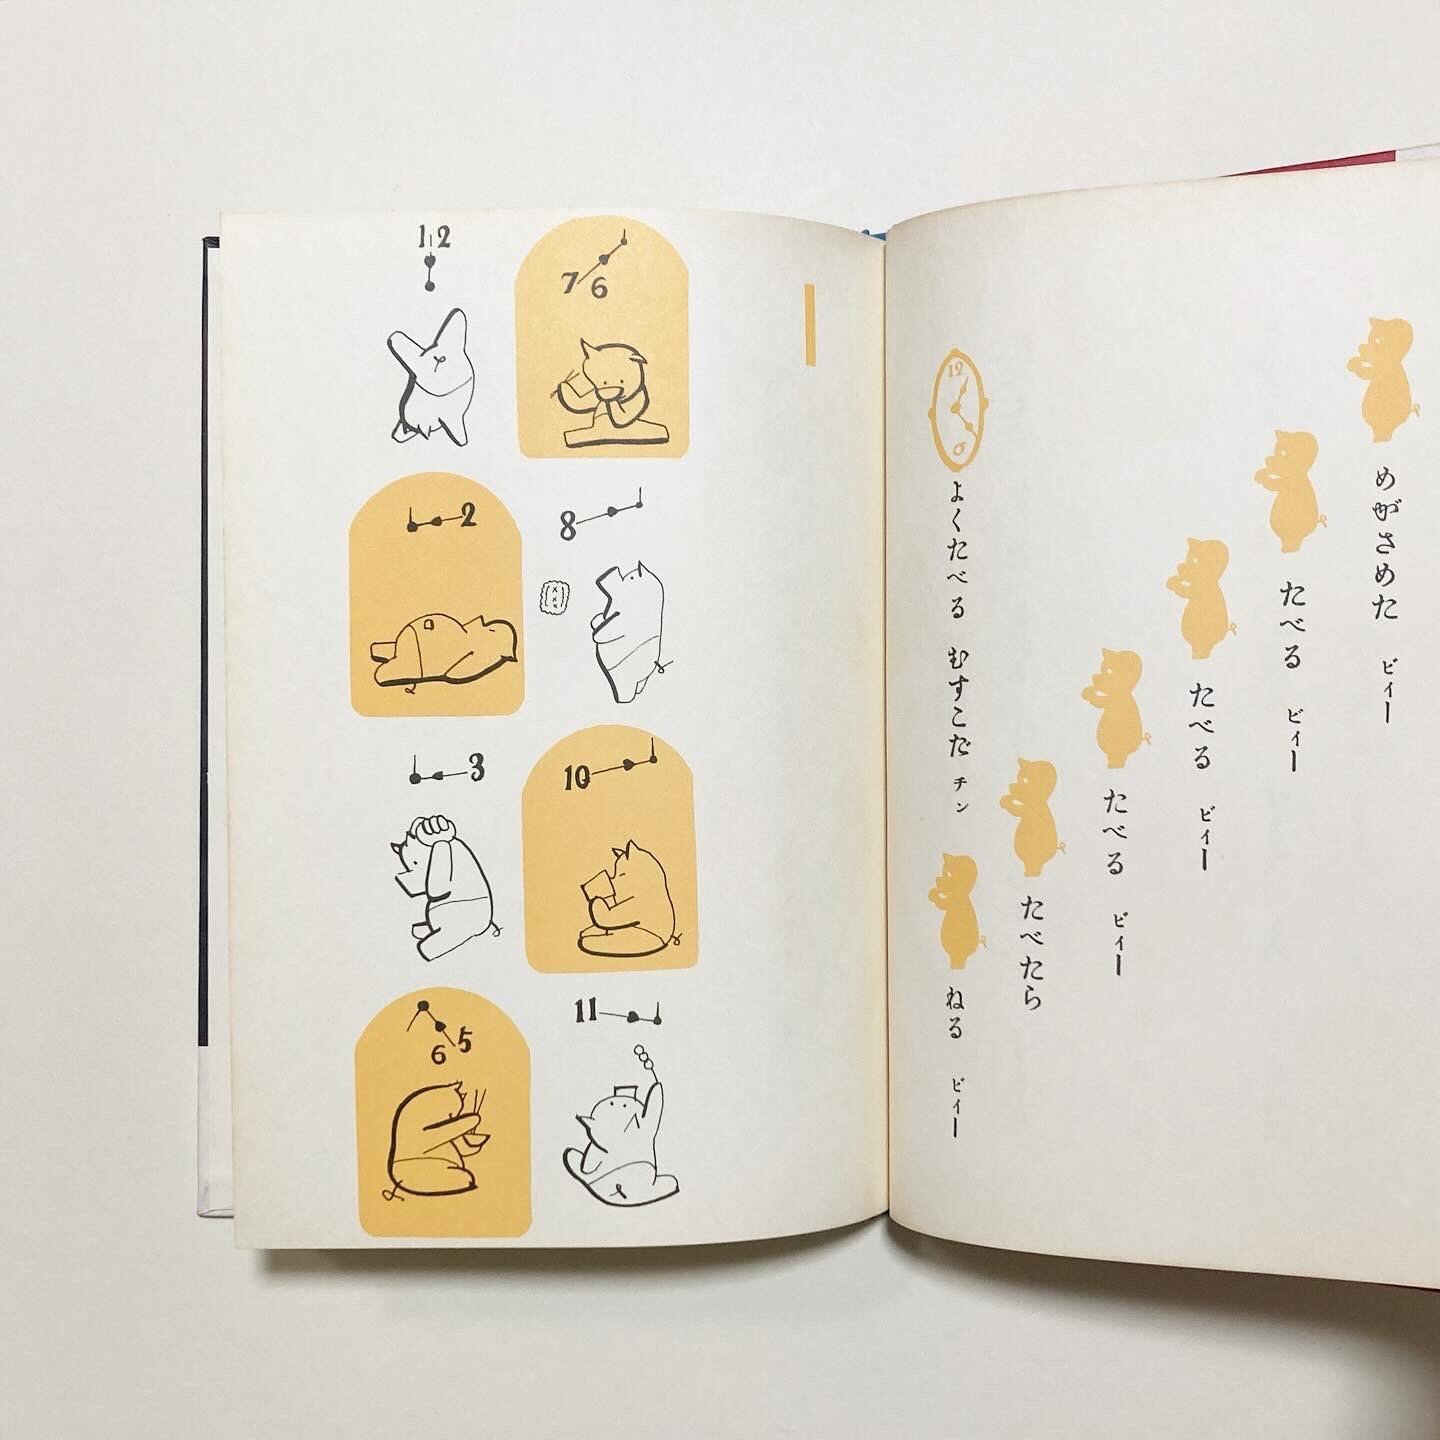 めがさめた ビィー
たべる ビィー
たべる ビィー
たべる ビィー
たべたら
ねる ビィー
12
6
よくたべる むすこだ チン
7 6
8
10
11
12
2
3
6 5